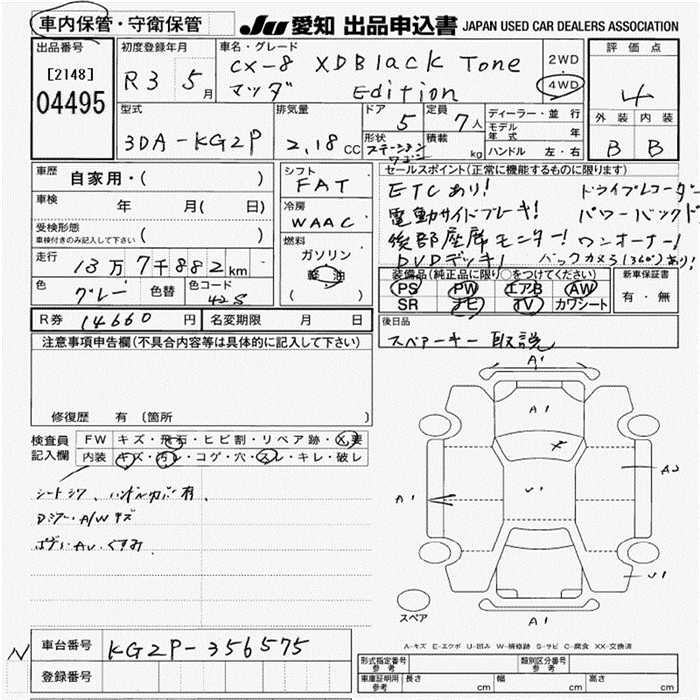 車内保管・守衛保管
JU 愛知 出品申込書 JAPAN USED CAR DEALERS ASSOCIATION
出品番号
[2148]
04495
初度登録年月
R3 5月
車名・グレード
CX-8 XDBlack Tone
マツダ Edition
2WD
4WD
評価点
4
外装 内装
B B
型式
3DA-KG2P
排気量
2,18cc
ドア
5
定員
7人
形状
ステーションワゴン
積載
kg
ディーラー・並行
モデル年式 年
ハンドル 左・右
車歴
自家用・( )
車検
年 月( 日)
受検形態
車検付きのみ記入して下さい ( )
走行
13万7千882km
色
グレー
色替
色コード
42S
シフト
FAT
冷房
WAAC
燃料
ガソリン
軽油
( )
セールスポイント(正常に機能するものに限ります)
ETCあり! ドライブレコーダー
電動サイドブレーキ! パワーバックド
後部座席モニター! ワンオーナー!
DVDデッキ! バックカメラ(360°)あり!
装備品(純正品に限り○をつけてください)
PS PW エアB AW
SR ナビ TV カワシート
新車保証書
有・無
R券 14660円
名変期限 月 日
後日品
スペアーキー 取説
注意事項申告欄(不具合内容等は具体的に記入して下さい)
修復歴 有 (箇所
検査員
記入欄
FW キズ・飛石・ヒビ割・リペア跡・X要
内装 キズ・汚レ・コゲ・穴・スレ・キレ・破レ
シートシワ、ハンドルカバー有、
A/Wキズ
A1
A1
A1
U1
A2
U1
A1
スペア
A-キズ E-エクボ U-凹み W-補修跡 S-サビ C-腐食 XX-交換済
車台番号
KG2P-356575
登録番号
形式指定番号
参考
類別区分番号
参考
車庫証明用
参考
長さ cm
幅 cm
高さ cm